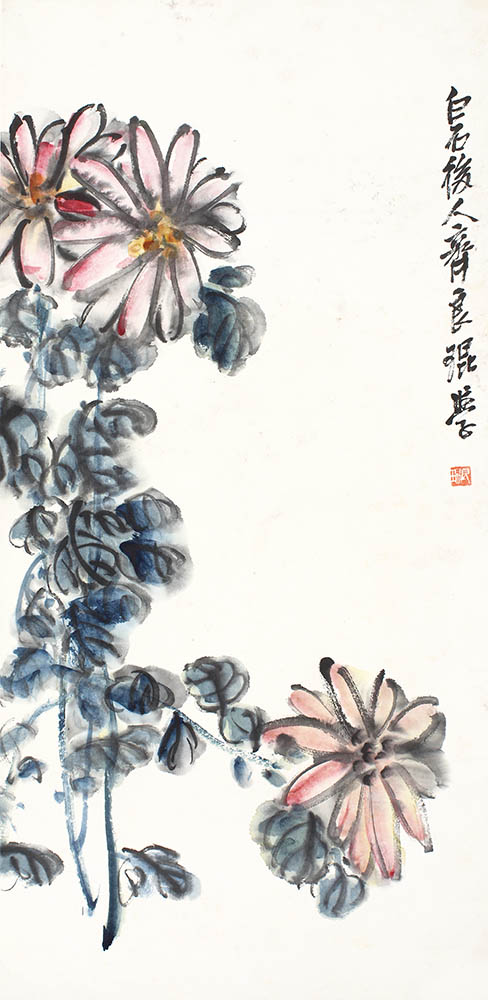 白石後人齊良琨學